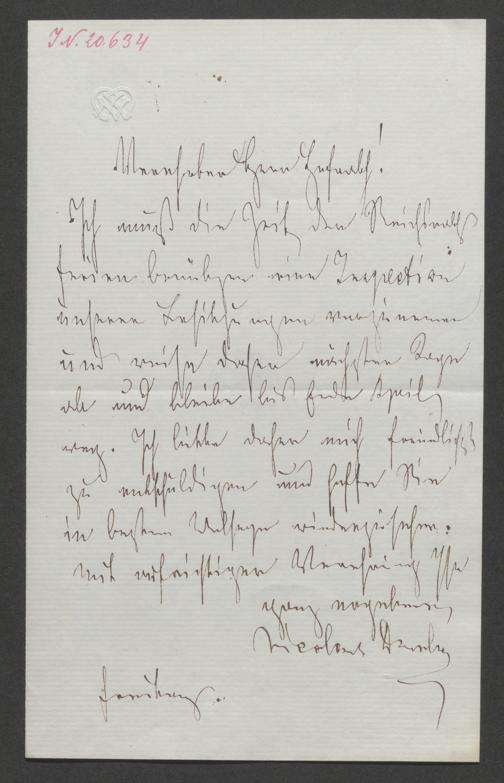 I.N. 20.634
Verehrter Herr Hofrath!
Ich muß die Zeit der Reichsraths
ferien benützen eine Inspection
unserer Besitzungen vorzunemen
und reise daher nächster Tage
ab und bleibe bis Ende April
weg. Ich bitte daher mich freundlichst
zu entschuldigen und hoffe Sie
in bestem Wolsein wiederzusehen.
Mit aufrichtiger Verehrung Ihr
ganz ergebener
Nicolaus